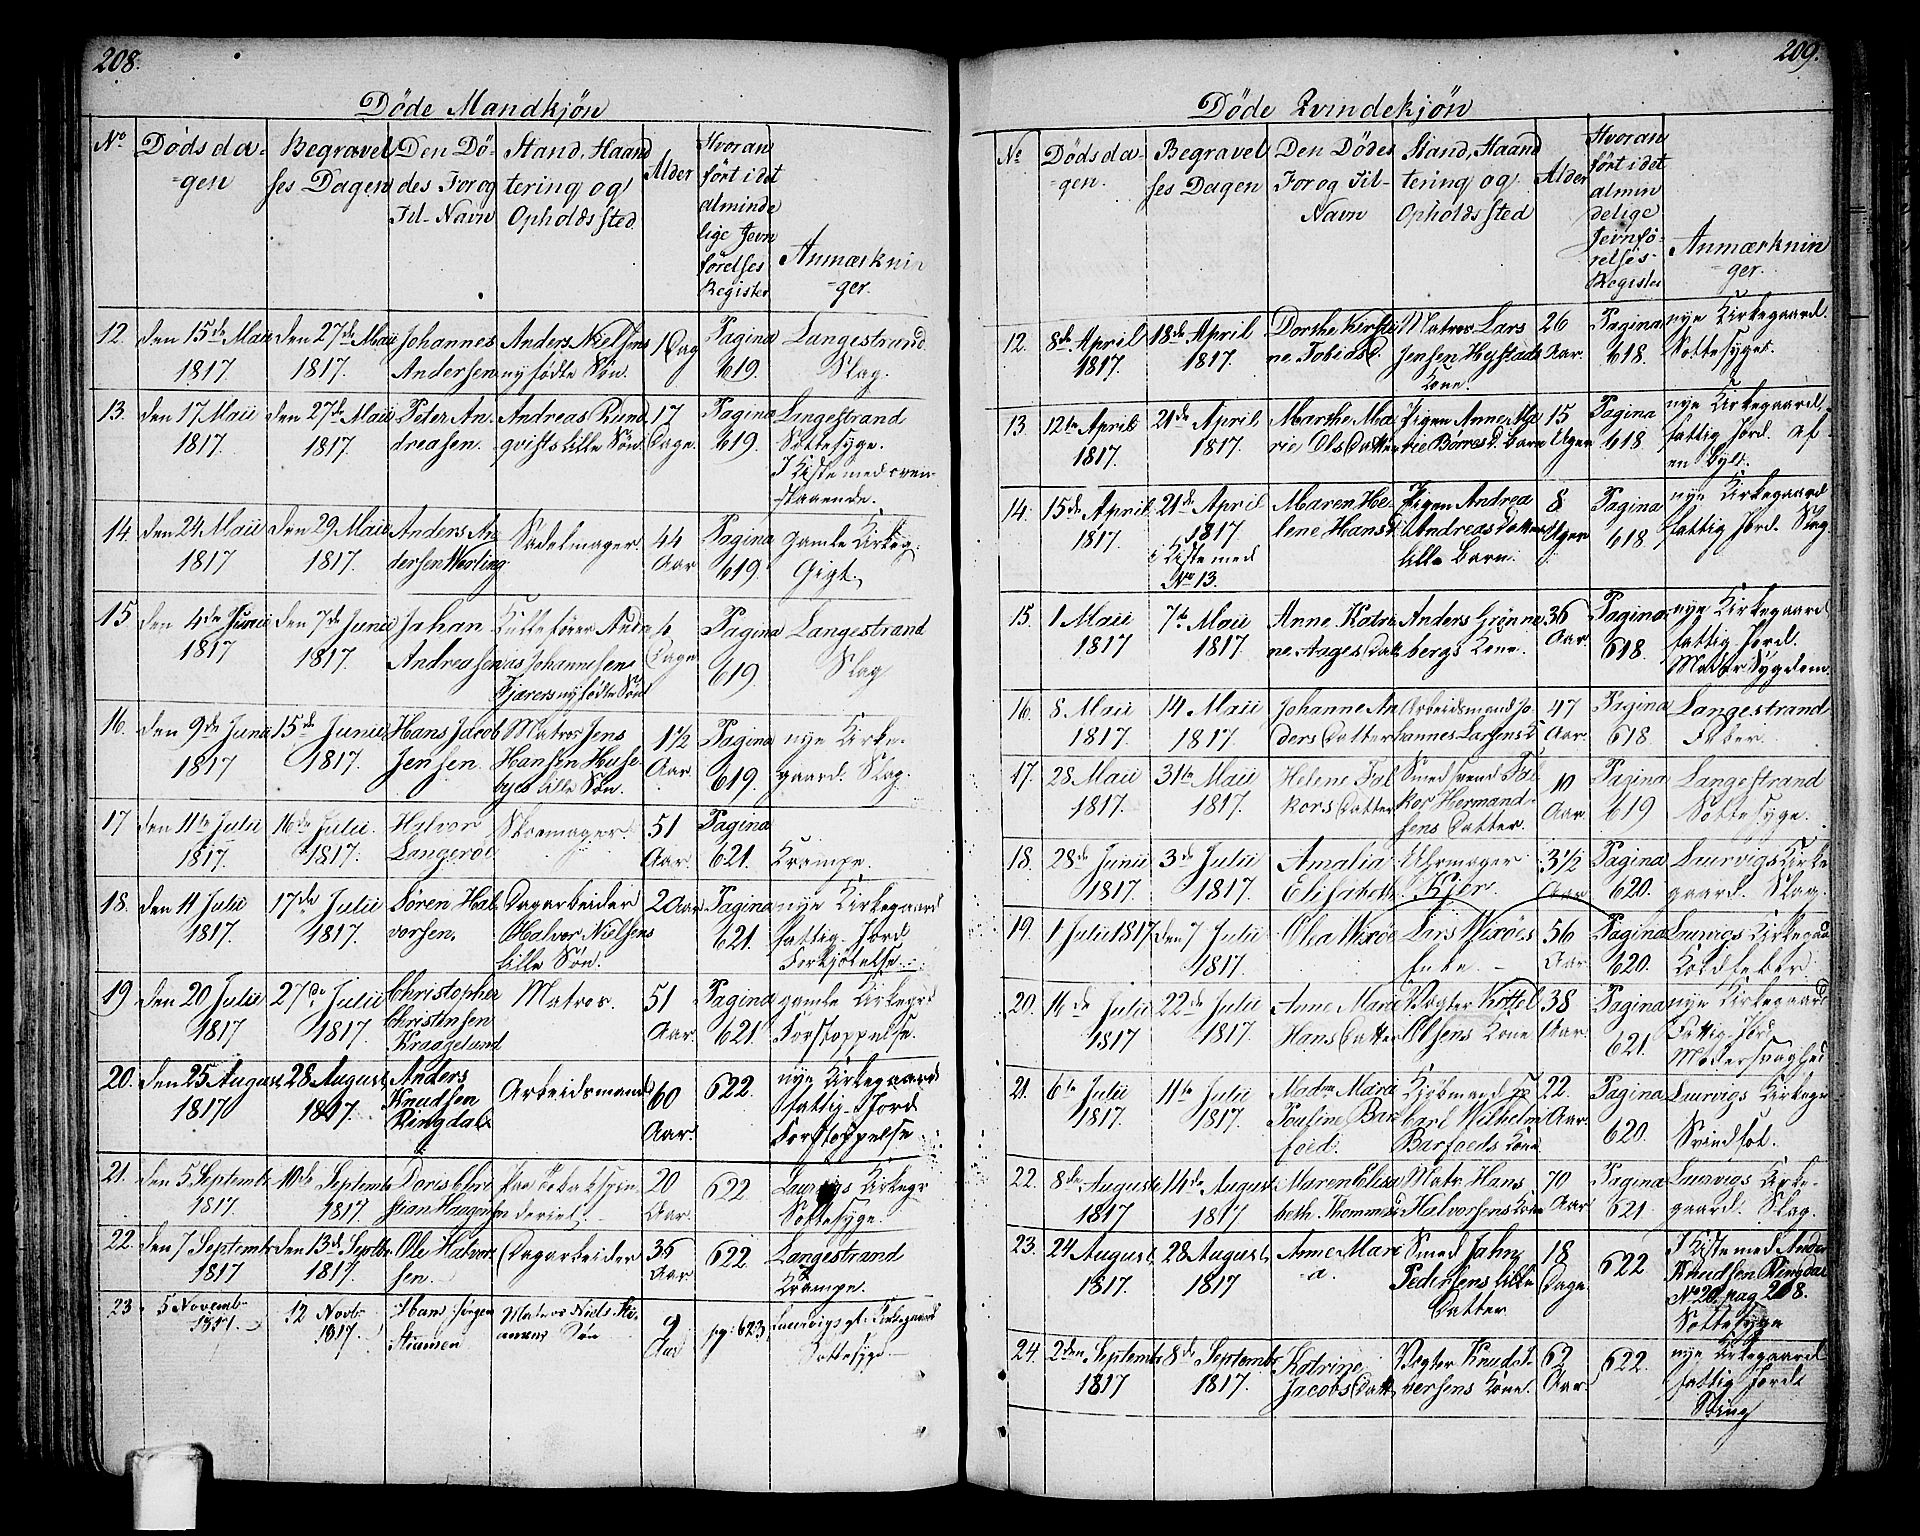 208.
Døde Mandkjøn
No
Dødsda-
-gen
Begravel
ses Dagen
Den Dø-
des For og
Til-Navn
Stand, Haand
tering og
Opholdssted
Alder
Hvoran
ført i det
alminde
lige Jevn
førelses
Register
Anmærknin
-ger.
12.
den 15de Maii
1817.
den 27de Maii
1817.
Johannes
Andersen
Anders Nielsens
nyfødte Søn.
1 Dag
Pagina
619.
Langestrand
Slag.
13.
den 17 Maii
1817.
den 27de Maii
1817.
Peter An-
dreasen.
Andreas Rund
qvists lille Søn.
17
Dage.
Pagina
619.
Langestrand
Sottesyge.
I Kiste med oven-
staaende.
14.
den 24 Maii
1817
den 29. Maii
1817.
Anders An
dersen
Sadelmager.
44
Aar
Pagina
619.
gamle Kirkeg.
Gigt.
15
den 4de Junii
1817
den 7de Junii
1817.
Johan
Andreasen
Andre
as Johannesens
nyfødte Søn
6
Dage
Pagina
619.
Langestrand
Slag
16.
den 9de Junii
1817
15de Junii
1817.
Hans Jacob
Jensen.
Matros Jens
Hansen Huse
byes lille Søn.
1 1/2
Aar.
Pagina
619.
nye Kirke-
gaard. Slag.
17
den 11te Julii
1817.
16de Julii.
1817.
Halvor
Langerøe
Skoemager.
51
Aar.
Pagina
621.
Krampe.
18.
den 11 Julii
1817.
17de Julii
1817.
Søren Hal
vorsen.
Dagarbeider
Halvor Nielsens
lille Søn.
2 Aar
Pagina
621.
nye Kirkegaard
fattig Jord
Forkjølelse.
19
den 20 Julii
1817
27de Julii
1817.
Christopher
Christensen
Kraagelund
Matros.
51
Aar.
Pagina
621.
gamle Kirkegrd
Forstoppelse.
20.
den 25 August
1817
28 August
1817.
Anders
Knudsen
Ringdal
Arbeidsmand
60
Aar.
622.
nye Kirkegaard
fattig Jord
Forstoppelse
21.
den 5 Septembr
1817.
10de Septembr
1817.
20
Aar.
622
Laurvigs Kirkegr
Sottesyge.
22.
den 7 Septembr
1817
den 13de Septbr
1817.
Ole Halvor
sen.
Dagarbeider
36
Aar
622.
Langestrand
Krampe.
23
5 Novemb
1817.
12 Novbr
1817.
Hans Jørgen
Matros Niels
Søn
9
Aar
pg: 623
Laurvigs gl. Kirkegaard
Sottesyge
209.
Døde Qvindekjøn
No
Dødsda-
-gen.
Begravel
ses Dagen
Den Dødes
For og Til-
Navn
Stand, Haand
tering og
Opholdssted
Alder
Hvoran
ført i det
almin
delige
Jevnfø-
relses-
Register
Anmærknin
-ger.
12.
8de April
1817.
18de April
1817.
Dorthe Kirsti
ne Tobiasd.
Matros Lars
Jensen Hystads
Kone.
26
Aar.
Pagina
618.
nye Kirkegaard.
Sottesyget.
13
12te April
1817.
21de April
1817.
Marthe Ma
rie Ols Datter
Pigen Anne Ma
rie Børresd. Barn
15
Uger
Pagina
618.
nye Kirkegaard,
fattig Jord. af
en Byld.
14.
15de April
1817.
21de April
1817
i Kiste med
No 13.
Maren He
lene Hansd
Pigen Andrea
Andreas Datters
lille Barn.
8
Uger
Pagina
618.
nye Kirkegaard
fattig Jord. Sting
15.
1 Maii
1817
7de Maii
1817.
Anne Katri
ne Aages Datt
Anders Grønne
bergs Kone.
36
Aar.
Pagina
618.
nye Kirkegaard
fattig Jord.
Moder Sygdom.
16.
8 Maii
1817.
14 Maii
1817.
Johanne An
ders Datter
Arbeidsmand Jo
hannes Larsens K
47
Aar.
Pagina
618.
Langestrand
Feber.
17.
28 Maii
1817.
31te Maii
1817.
Helene Fal
kors Datter
Smed svend Fal
kor Hermand-
sens Datter.
10
Aar.
Pagina
619
Langestrand
Sottesyge.
18.
28de Junii
1817
3de Julii
1817.
Amalia
Elisabeth
Uhrmager
Kjer.
3 1/2
Aar
Pagina
620.
Laurvigs Kirke
gaard. Slag.
19.
1 Julii 1817
den 7 Julii
1817.
Olea Wixøe
Lars Wixøes
Enke.
56
Aar.
Pagina
620.
Laurvigs Kirkegaa
Koldfeber.
20.
16de Julii
1817
22de Julii
1817.
Anne Marie
Hans Datter
Vægter Kittel
Olsens Kone
38
Aar.
Pagina
621.
nye Kirkegaard
Fattig Jord
Modersvaghed
21.
6te Julii
1817.
11te Julii
1817.
Madm Mara
Pouline Bar
foed.
Kjøbmand
Carl Wilhelm
Barfoeds Kone
22.
Aar.
Pagina
620.
Laurvigs Kirkegr
Svindsot.
22.
8de August
1817
14de August
1817
Maren Elisa
beth Thommesd
Matr. Hans
Halvorsens Kone
70
Aar
Pagina
621.
Laurvigs Kirke-
gaard. Slag.
23.
24 August
1817.
28 August
1817
Anne Mari
a.
Smed Jahn
Pedersens lille
Datter
18
Dage
622
I Kiste med Anders
Knudsen Ringdal
No 20 pag 208.
Sottesyge
24.
2den Septembr
1817
8de Septembr
1817.
Katrine
Jacobs Datt
Vægter Knud I
versens Kone.
62
Aar.
622.
nye Kirkegaard
fattig Jord
Sting